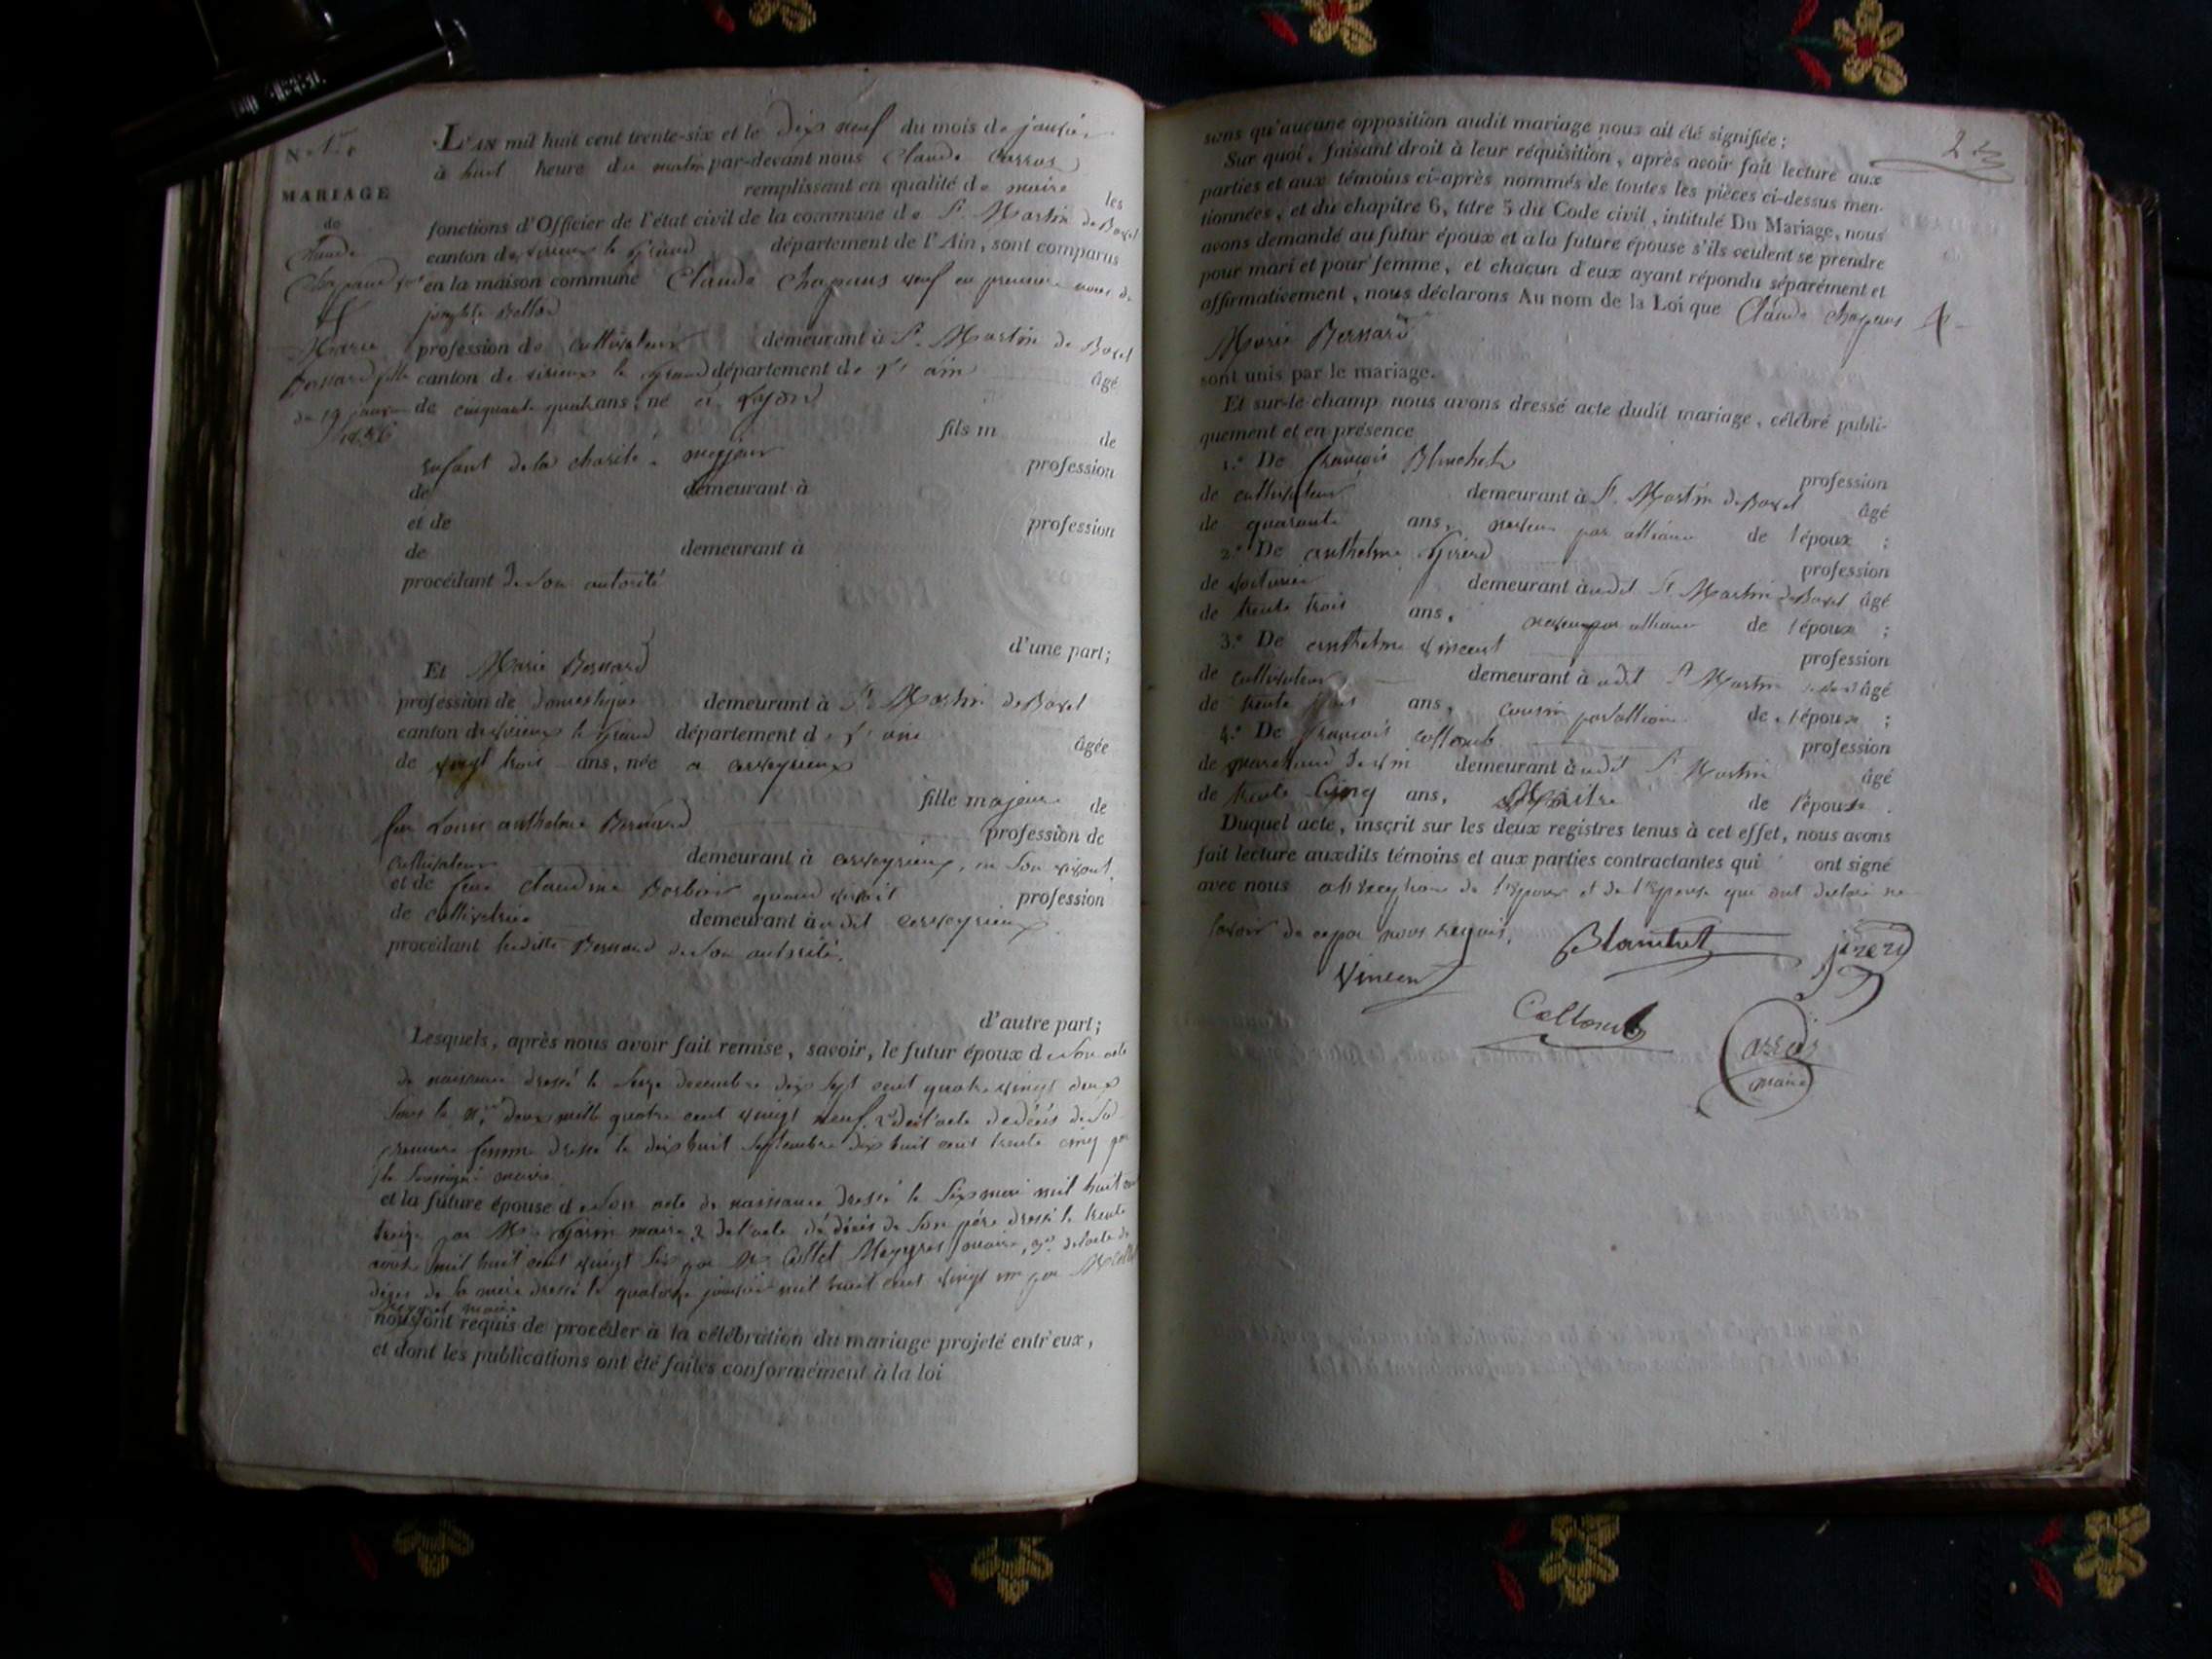 N.º 1er
MARIAGE
de
Claude
Chapuus
et
Marie
Bernard
du 19 janvier
1836
L'AN mil huit cent trente-six et le dix neuf du mois de janvier
à huit heure du matin par-devant nous Claude Carras
remplissant en qualité de maire les
fonctions d'Officier de l'état civil de la commune de St. Martin de Bavel
canton de virieux le grand département de l'Ain, sont comparus
en la maison commune Claude Chapuus veuf en premiere noce de
profession de cultivateur demeurant à St. Martin de Bavel
canton de virieux le grand département de l'ain âgé
de cinquante quatre ans, né à Lyon
fils m de
enfant de la charité, majeur profession
de demeurant à
et de profession
de demeurant à
procédant de son autorité
d'une part;
Et Marie Bernard
profession de domestique demeurant à St. Martin de Bavel
canton de virieux le grand département de l'ain âgée
de vingt trois ans, née a arveyrieux
fille majeure de
feu Louis anthelme Bernard profession de
cultivateur demeurant à cerveyrieux, en son vivant,
et de feue claudine Barbier quand vivoit profession
de cultivatrice demeurant àudit cerveyrieux
procédant laditte Bernard de son autorité.
d'autre part;
Lesquels, après nous avoir fait remise, savoir, le futur époux de son acte
de naissance dressé le seize decembre dix sept cent quatre vingt deux
sous le n.º deux mille quatre cent vingt neuf, 2º de l'acte de décès de sa
premiere femme dressé le dix huit septembre dix huit cent trente cinq par
le soussigné maire.
et la future épouse de son acte de naissance dressé le six mai mil huit cent
treize par Mr. maire, 2º de l'acte de décès de son père dressé le trente
mil huit cent vingt six par Mr. maire, 3º. de l'acte de
décès de sa mère dressé le quatorze janvier mil huit cent vingt un par Mr
maire
nous ont requis de procéder à la célébration du mariage projeté entr'eux,
et dont les publications ont été faites conformément à la loi
2
sans qu'aucune opposition audit mariage nous ait été signifiée;
Sur quoi, faisant droit à leur réquisition, après avoir fait lecture aux
parties et aux témoins ci-après nommés de toutes les pièces ci-dessus men-
tionnées, et du chapitre 6, titre 5 du Code civil, intitulé Du Mariage, nous
avons demandé au futur époux et à la future épouse s'ils veulent se prendre
pour mari et pour femme, et chacun d'eux ayant répondu séparément et
affirmativement, nous déclarons Au nom de la Loi que Claude Chapuus &
Marie Bernard
sont unis par le mariage.
Et sur-le-champ nous avons dressé acte dudit mariage, célébré publi-
quement et en présence
1.º De françois Blanchet profession
de cultivateur demeurant à St. Martin de Bavel âgé
de quarante ans, neveu par alliance de l'époux ;
2.º De anthelme Girerd profession
de voiturier demeurant àudit St. Martin de Bavel âgé
de trente trois ans, neveu par alliance de l'époux ;
3.º De anthelme vincent profession
de cultivateur demeurant àudit St. Martin de Bavel âgé
de trente trois ans, cousin par alliance de l'époux ;
4.º De françois collomb profession
de marchand de vin demeurant àudit St. Martin âgé
de trente Cinq ans, Maitre de l'épouse .
Duquel acte, inscrit sur les deux registres tenus à cet effet, nous avons
fait lecture auxdits témoins et aux parties contractantes qui ont signé
avec nous à l'exception de l'époux et de l'épouse qui ont déclaré ne
savoir de ce par nous requis.
Blanchet
jirerd
Vincent
Collomb
Carras
maire